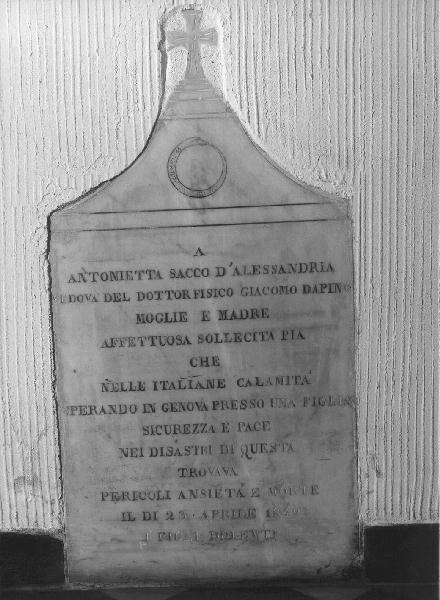 A
ANTONIETTA SACCO D'ALESSANDRIA
VEDOVA DEL DOTTOR FISICO GIACOMO DAPINO
MOGLIE E MADRE
AFFETTUOSA SOLLECITA PIA
CHE
NELLE ITALIANE CALAMITA'
SPERANDO IN GENOVA PRESSO UNA FIGLIA
SICUREZZA E PACE
NEI DISASTRI DI QUESTA
TROVAVA
PERICOLI ANSIETÀ E MORTE
IL DI 23 APRILE
I FIGLI DOLENTI